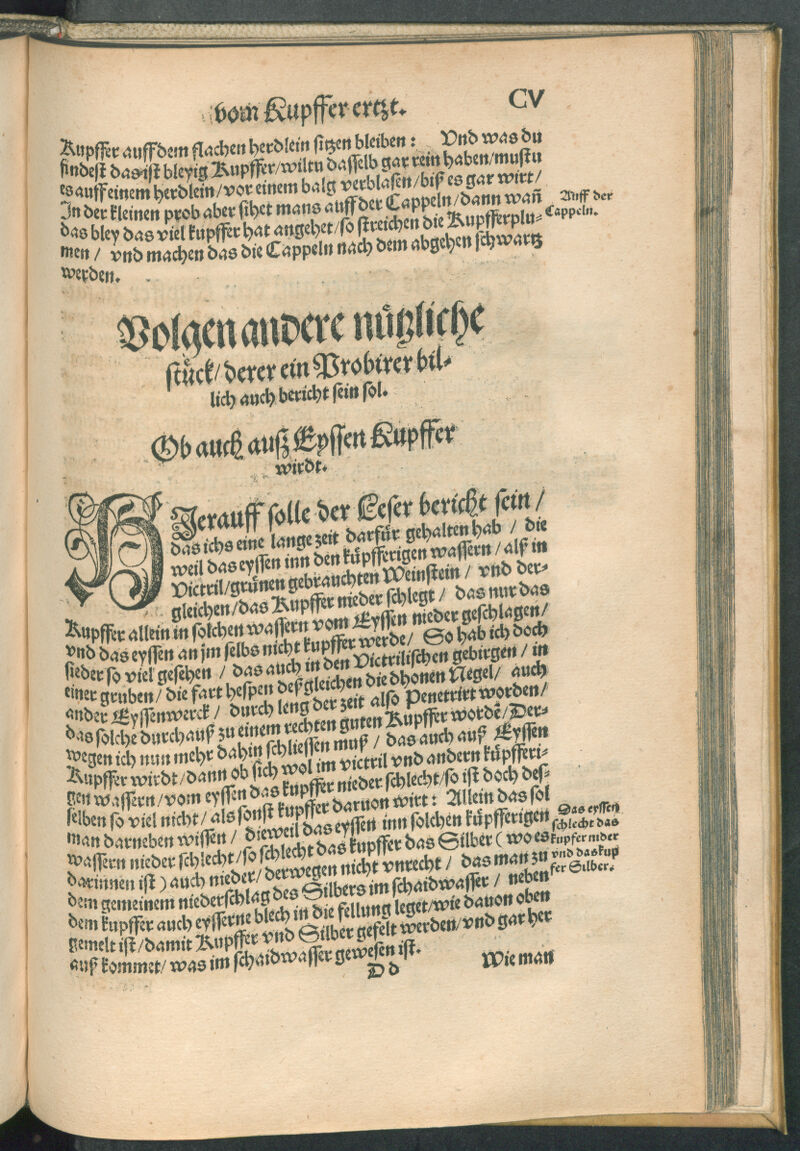 vom Kupffer ertzt. CV
Kupffer auff dem flachen herdlein sitzen bleiben: Vnd was du
findest das ist bleyig Kupffer/wiltu dasselb gar rein haben/mustu
es auff einem herdlein/vor einem balg verblasen/biß es gar wirt/
In der kleinen prob aber sihet mans auff der Cappeln/dann wañ
das bley das viel kupffer hat angehet/so streichen die Kupfferplu-
men/ vnd machen das die Cappeln nach dem abgehen schwartz
werden.
Auff der
Cappeln.
Volgen andere nützliche
stück/derer ein Probirer bil-
lich auch bericht sein sol.
Ob auch auß Eyssen Kupffer
wirdt.
HIerauff solle der Leser bericht sein/
das ichs eine lange zeit darfür gehalten hab/ die
weil das eyssen inn den küpfferigen wassern/alß in
Victril/grünen gebrauchten Weinstein/ vnd der-
gleichen/das Kupffer nieder schlegt/ das nur das
Kupffer allein in solchen wassern vom Eyssen nieder geschlagen/
vnd das eyssen an jm selbs nicht kupffer werde/ So hab ich doch
sieder so viel gesehen/ das auch in den Victrilischen gebirgen/ in
einer gruben/ die fart hespen deßgleichen die dhonen Negel/ auch
ander Eyssenwerck/ durch leng der zeit also Penetrirt worden/
das solche durchauß zu einem rechten guten Kupffer wordē/Der-
wegen ich nun mehr dahin schliessen muß/ das auch auß Eyssen
Kupffer wirdt/dann ob sich wol im victril vnd andern küpfferi-
gen wassern/vom eyssen das kupffer nieder schlecht/so ist doch des-
selben so viel nicht/ als sonst kupffer daruon wirt: Allein das sol
man darneben wissen/ dieweil das eyssen inn solchen küpfferigen
wassern nieder schlecht/so schlecht das kupffer das Silber (wo es
darinnen ist) auch nieder/derwegen nicht vnrecht/ das man zu
dem gemeinem niederschlag des Silbers im schaidwasser/ neben
dem kupffer auch eysserne blech in die fellung leget/wie dauon oben
gemelt ist/damit Kupffer vnd Silber gefelt werden/vnd gar her
auß kommet/was im schaidwasser gewesen ist.
Das eyssen
schlecht das
kupfer nider
vnd das kup
fer Silber.
D d Wie man